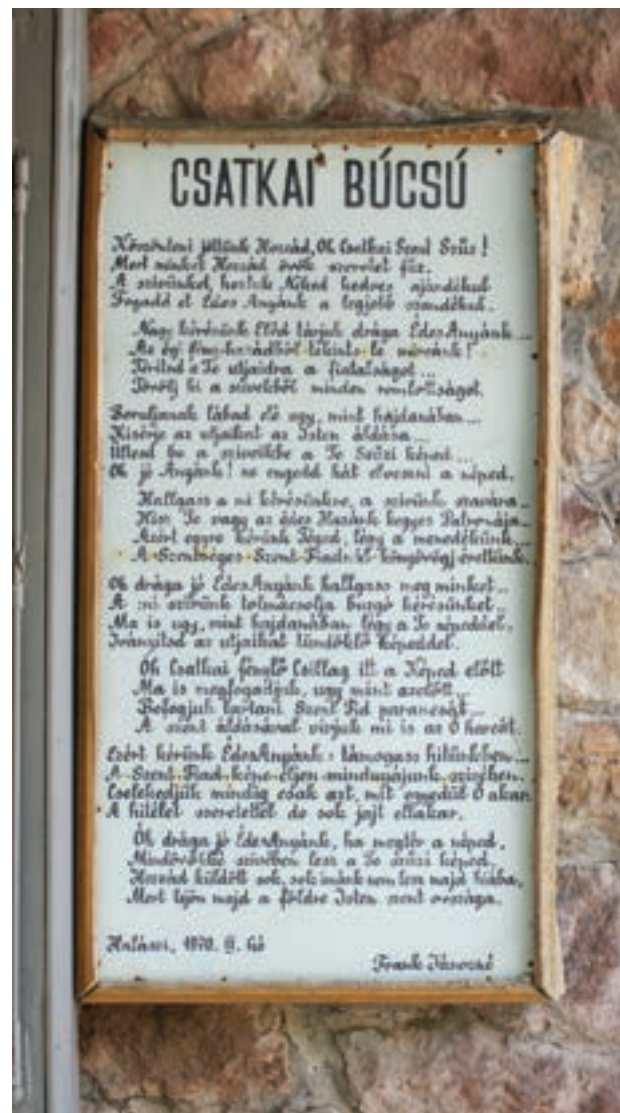 CSATKAI BÚCSÚ
Köszönteni jöttünk Hozzád, Oh Csatkai Szent Szűz!
Mert minket Hozzád örök szeretet fűz.
A szívünket, hoztuk Néked kedves ajándékul
Fogadd el Édes Anyánk a legjobb szándékul.
Nagy kérésünk Eléd tárjuk drága ÉdesAnyánk...
Az ég fény- le miránk!
Térítsd a Te utjaidra a fiatalságot...
Törölj ki a szívekből minden romlottságot.
Boruljanak lábad elé ugy, mint hajdanában...
Kisérje az utjaikat az Isten áldása...
Ültesd be a szíveikbe a Te Szűzi képed...
Oh jó Anyánk! ne engedd hát elveszni a néped.
Hallgass a mi kérésünkre, a szívünk szavára...
Hisz Te vagy az édes Hazánk kegyes Patronája...
Azért egyre kérünk Téged, légy a menedékünk...
A Szentséges Szent Fiadnál könyörögj érettünk.
Oh drága jó ÉdesAnyánk hallgass meg minket...
A mi szívünk tolmácsolja buzgó kérésünket...
Ma is ugy, mint hajdanában légy a Te népeddel,
Irányitsd az utjaikat tündöklő képeddel.
Oh Csatkai fénylő Csillag itt a Képed előtt
Ma is megfogadjuk, ugy mint azelőtt...
Befogjuk tartani Szent Fid parancsát...
A szent áldásával vívjuk mi is az Ő harcát.
Ezért kérünk ÉdesAnyánk: támogass hitünkben...
A Szent Fiad képe éljen mindnyájunk szívében.
Cselekedjük mindig csak azt, mit egyedül Ő akar
A hitélet szeretettel de sok jajt eltakar.
Oh drága jó ÉdesAnyánk, ha megtér a néped,
Mindörökké szívében lesz a Te szűzi képed,
Hozzád küldött sok, sok imánk nem lesz majd hiába,
Mert eljön majd a földre Isten szent országa.
1970. hó
Frank Jánosné